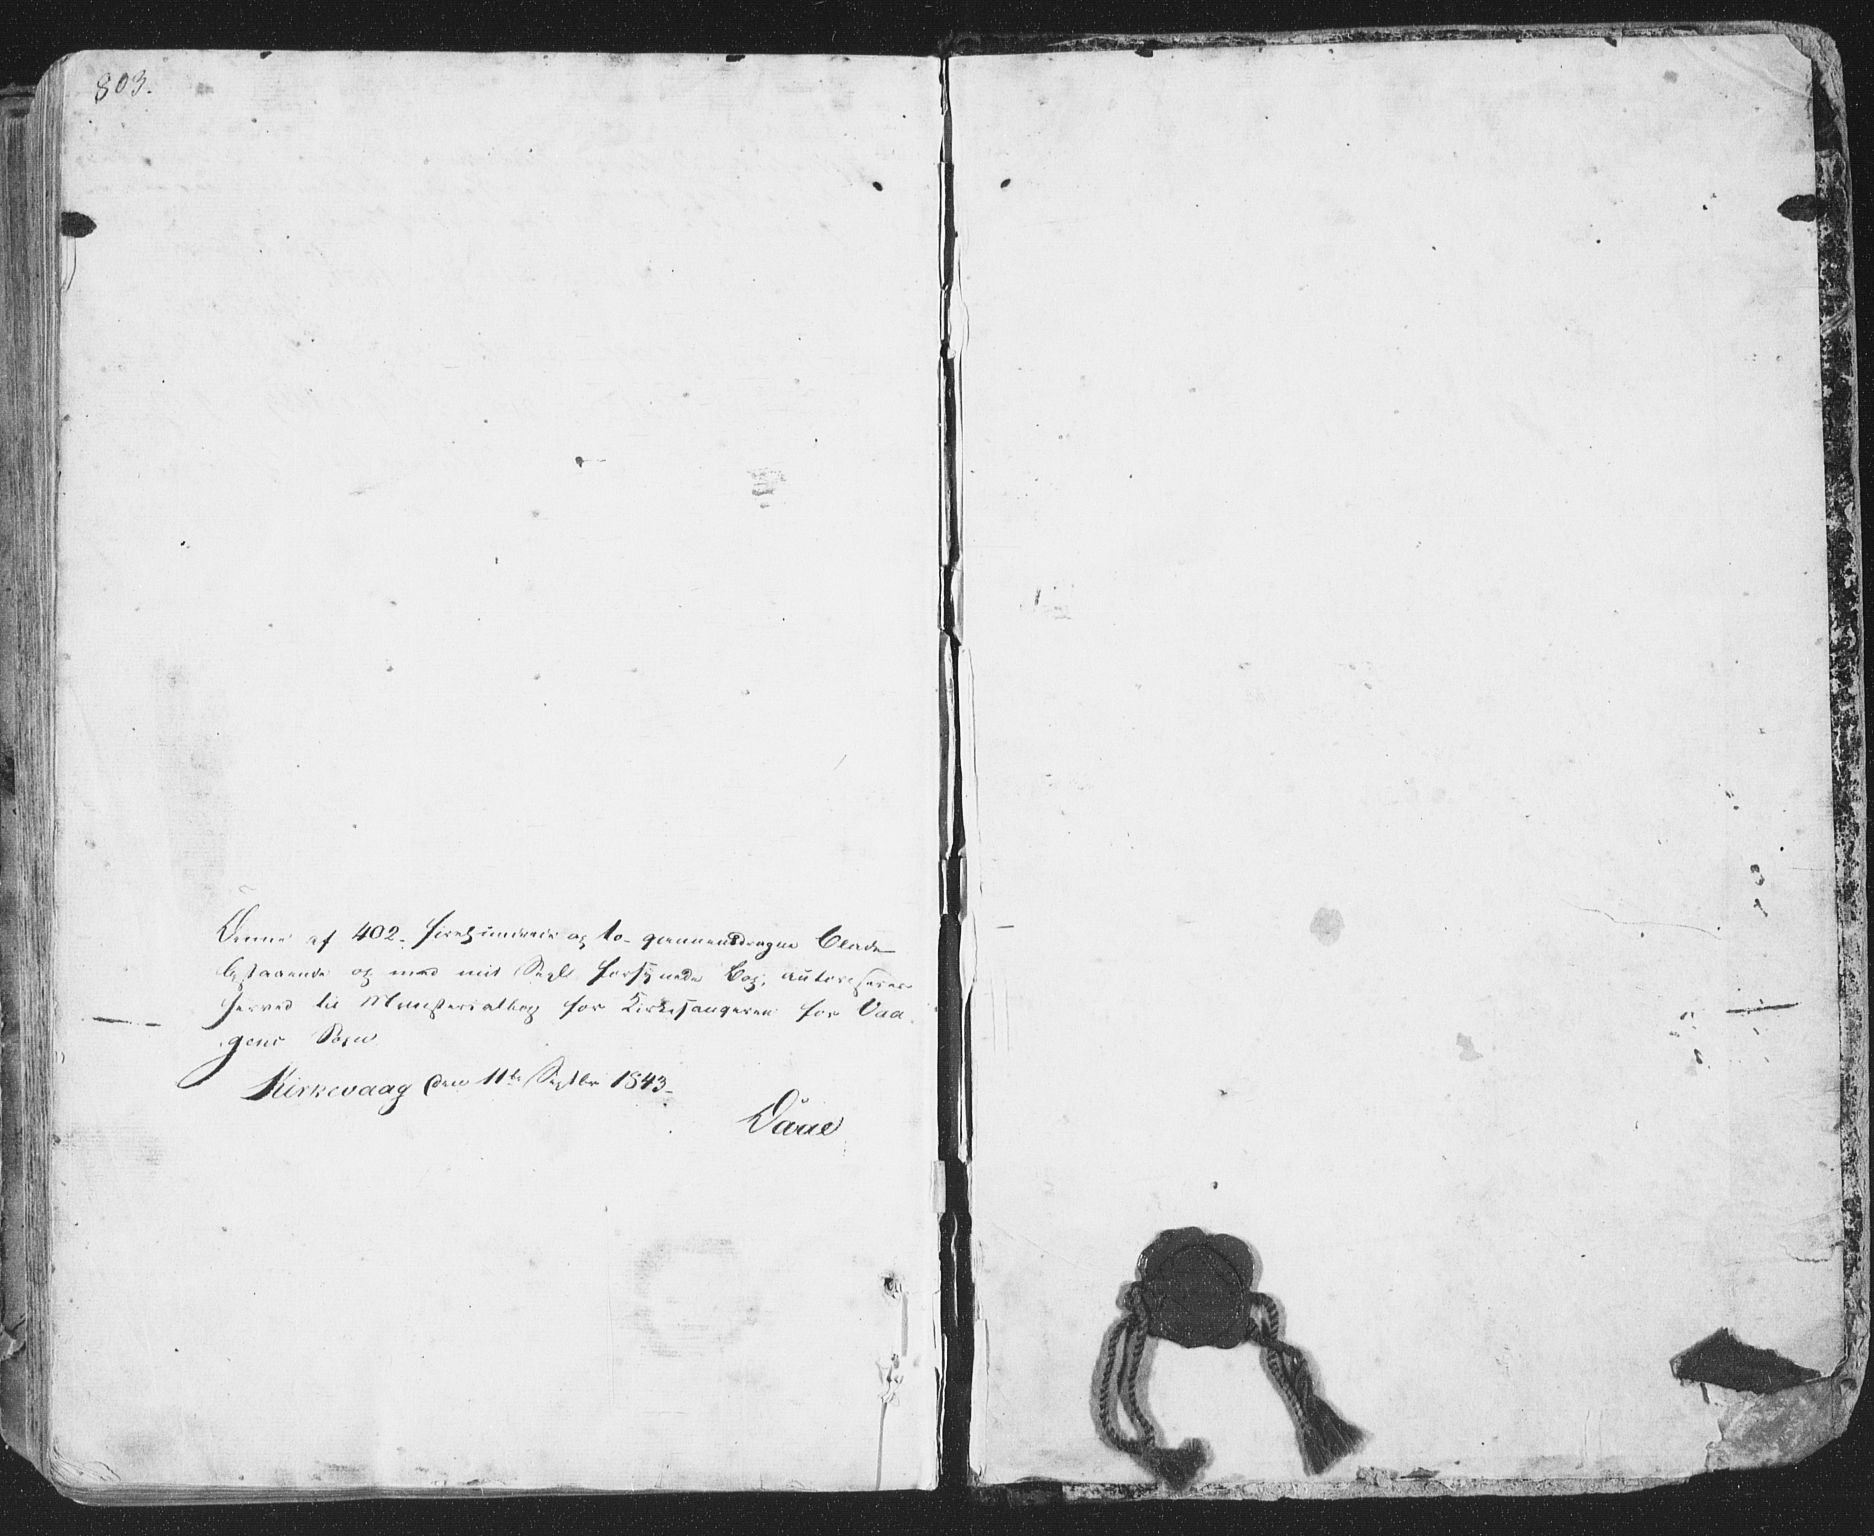 803.
Denne af 402- firehundrede og to- gjennemdragne Blade
bestaaende og med mit Segl forsynede Bog, autoriseres
herved til Ministerialbog for Kirkesangeren for Vaa
gens Sogn
Kirkevaag den 11te Septbr 1843-
Daae